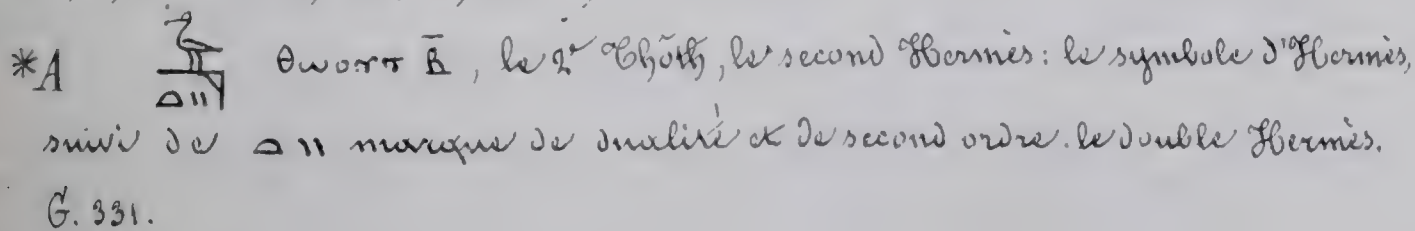 *A 𓅝𓏏𓏭 Ⲑⲱⲟⲩⲧ B̅, le 2ᵉ Thôth, le second Hermès: le symbole d'Hermès,
suivi de 𓏏𓏭 marque de dualité et de second ordre. le double Hermès.
G. 331.